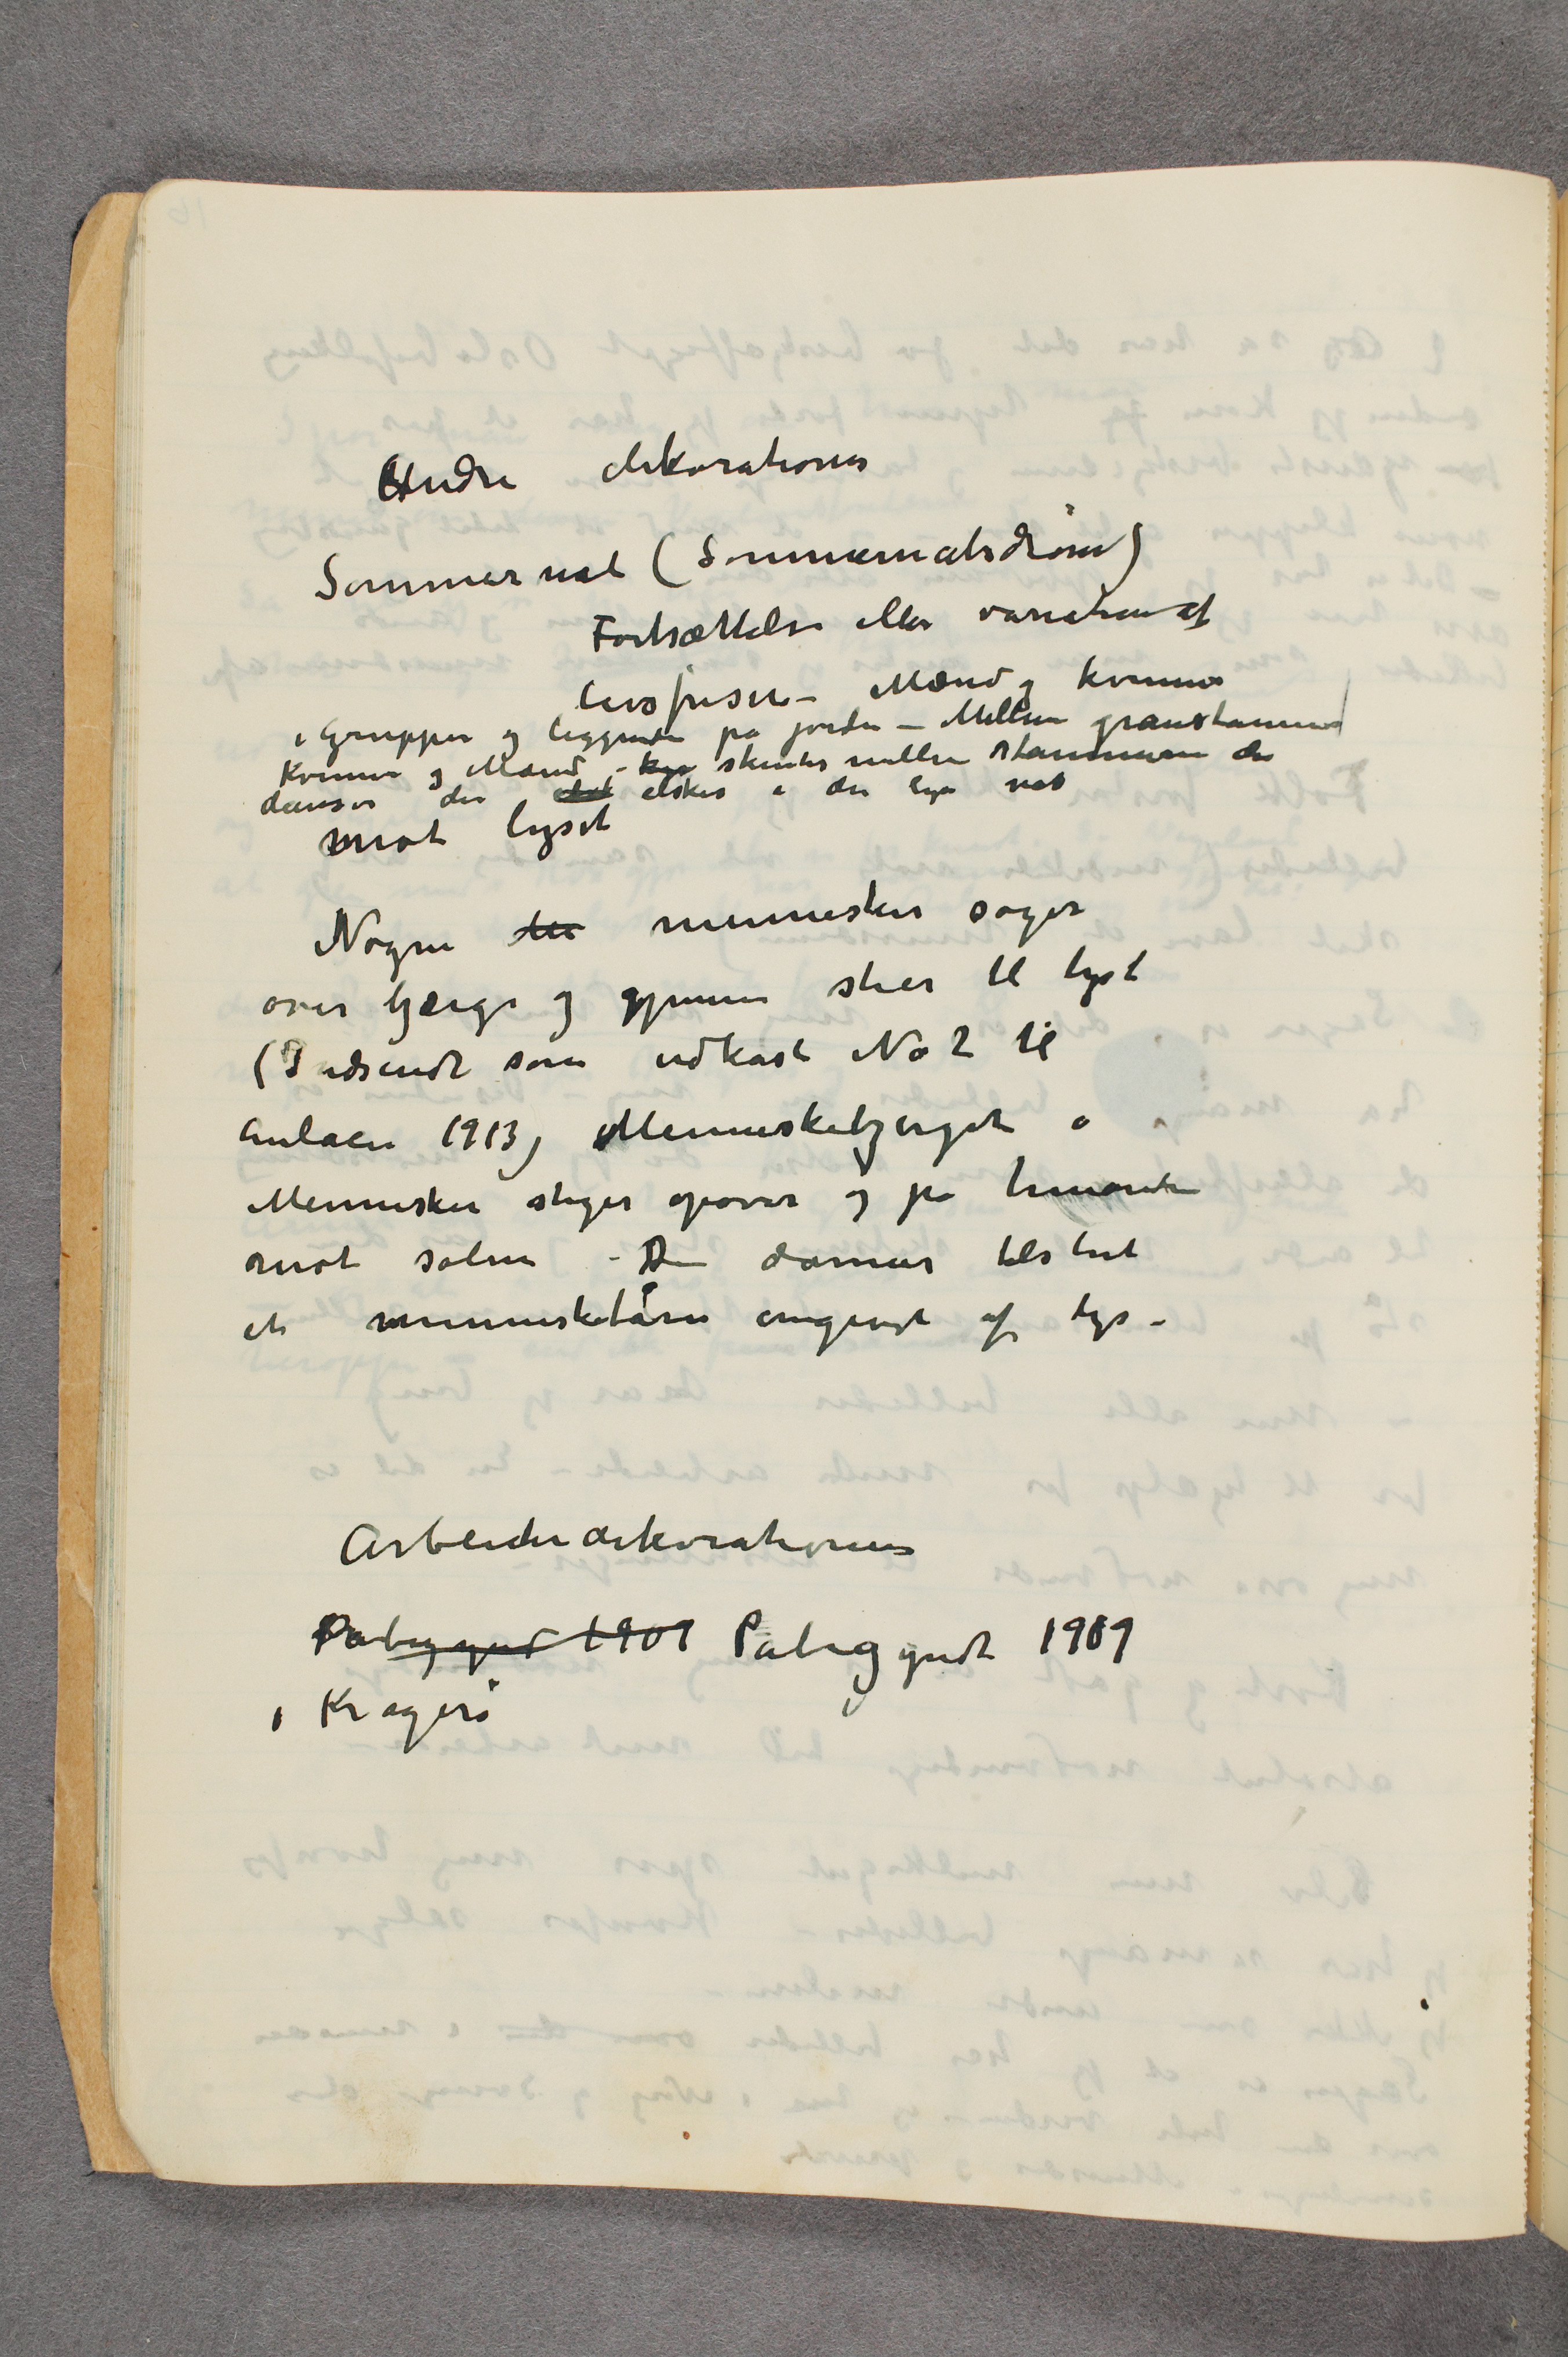 Andre dekorationer
Sommernat (Sommernatsdrøm)
Fortsættelse eller variation af
livsfrisen – Mænd og kvinner
i Grupper og liggende på jorden – Mellem granstammene
Kvinner og Mænd – skimtes mellem stammerne der
danser der elsker i den lyse nat
mot lyset
Nøgne mennesker søger
over bjerge og gjennem stier til lyset
(Indsendt som udkast No 2 til
Aulaen 1913) Menneskebjerget
Mennesker stiger opover og på
mot solen – De danner tilslut
et mennesketårn omgivet af lys –
Arbeiderdekorationer
Påbegyndt 1909 Påbegyndt 1909
i Kragerø